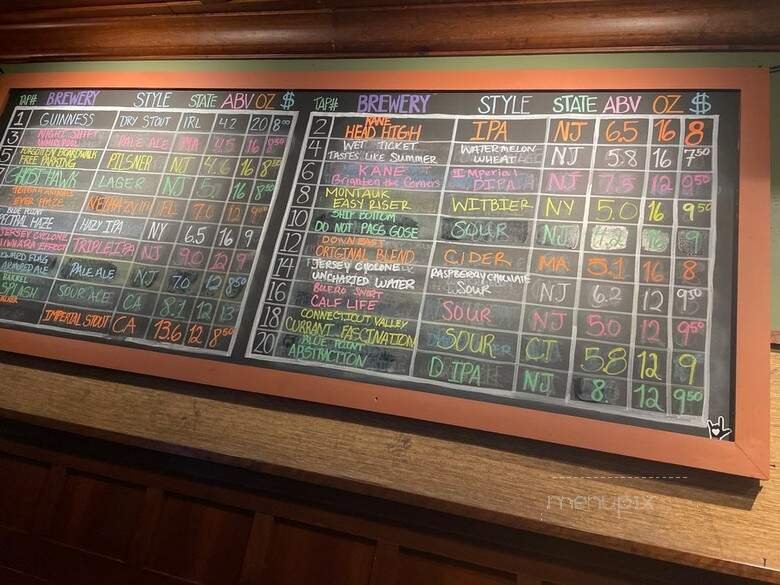 TAP# BREWERY STYLE STATE ABV OZ $
1 GUINNESS DRY STOUT IRL 4.2 20 8⁰⁰
3 NIGHT SHIFT
PALE ALE MA 4.5 16 9⁵⁰
5 FORGOTTEN BOARDWALK
FREE PARKING PILSNER NJ 4.6 16 8⁵⁰
HAWK LAGER NJ 5. 16 8⁵⁰
FL 7.0 12
BLUE POINT
HAZE HAZY IPA NY 6.5 16 9
JERSEY CYCLONE
EFFECT TRIPLE IPA NJ 9.0 12 9
FLAG
PALE ALE NJ 7.0 12 8⁵⁰
SPLASH SOUR ALE CA 8.1 12
IMPERIAL STOUT CA 13.6 12 8⁵⁰
TAP# BREWERY STYLE STATE ABV OZ $
2 KANE
HEAD HIGH IPA NJ 6.5 16 8
4 WET TICKET
TASTES LIKE SUMMER WATERMELON
WHEAT NJ 5.8 16 7⁵⁰
6 KANE
Brighten the Corners IMPERIAL
DIPA NJ 7.5 12 9⁵⁰
8 MONTAUK
EASY RISER WITBIER NY 5.0 16 9⁵⁰
10 SHIP BOTTOM
DO NOT PASS GOSE SOUR NJ 4.2 16 9
12 DOWN EAST
ORIGINAL BLEND CIDER MA 5.1 16 8
14 JERSEY CYCLONE
UNCHARTED WATER RASPBERRY CHOCOLATE
SOUR NJ 6.2 12 9⁵⁰
16 BOLERO SNORT
CALF LIFE SOUR NJ 5.0 12 9⁵⁰
18 CONNECTICUT VALLEY
CURRANT FASCINATION SOUR CT 5.8 12 9
20 BLUE POINT
ABSTRACTION DIPA NJ 8. 12 9⁵⁰
menupix